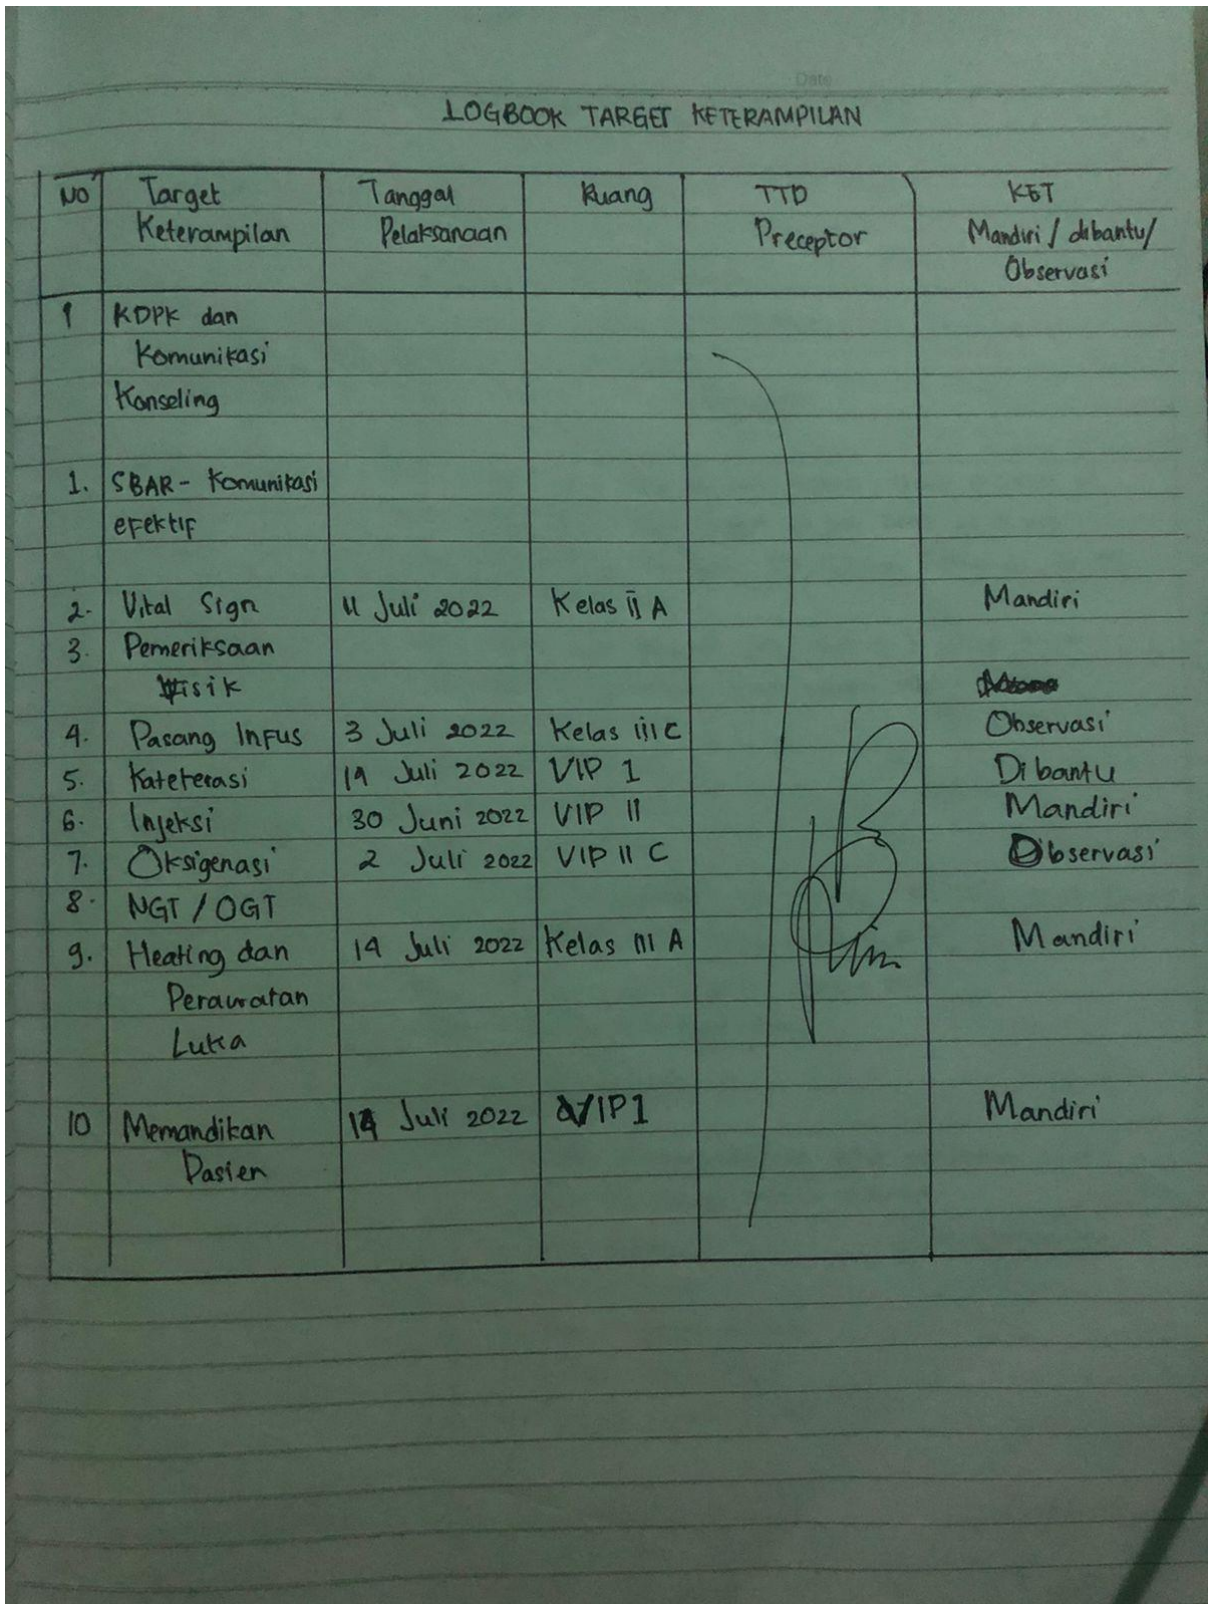 Date
LOGBOOK TARGET KETERAMPILAN
NO Target Keterampilan Tanggal Pelaksanaan Ruang TTD Preceptor KET Mandiri / dibantu / Observasi
1 KDPK dan
Komunikasi
Konseling
1. SBAR - Komunikasi
efektif
2. Vital Sign 11 Juli 2022 Kelas II A Mandiri
3. Pemeriksaan
Fisik
4. Pasang Infus 3 Juli 2022 Kelas III C Observasi
5. Kateterasi Juli 2022 VIP 1 Dibantu
6. Injeksi 30 Juni 2022 VIP II Mandiri
7. Oksigenasi 2 Juli 2022 VIP II C Observasi
8. NGT / OGT
9. Heating dan 14 Juli 2022 Kelas III A Mandiri
Perawatan
Luka
10 Memandikan 14 Juli 2022 VIP 1 Mandiri
Pasien